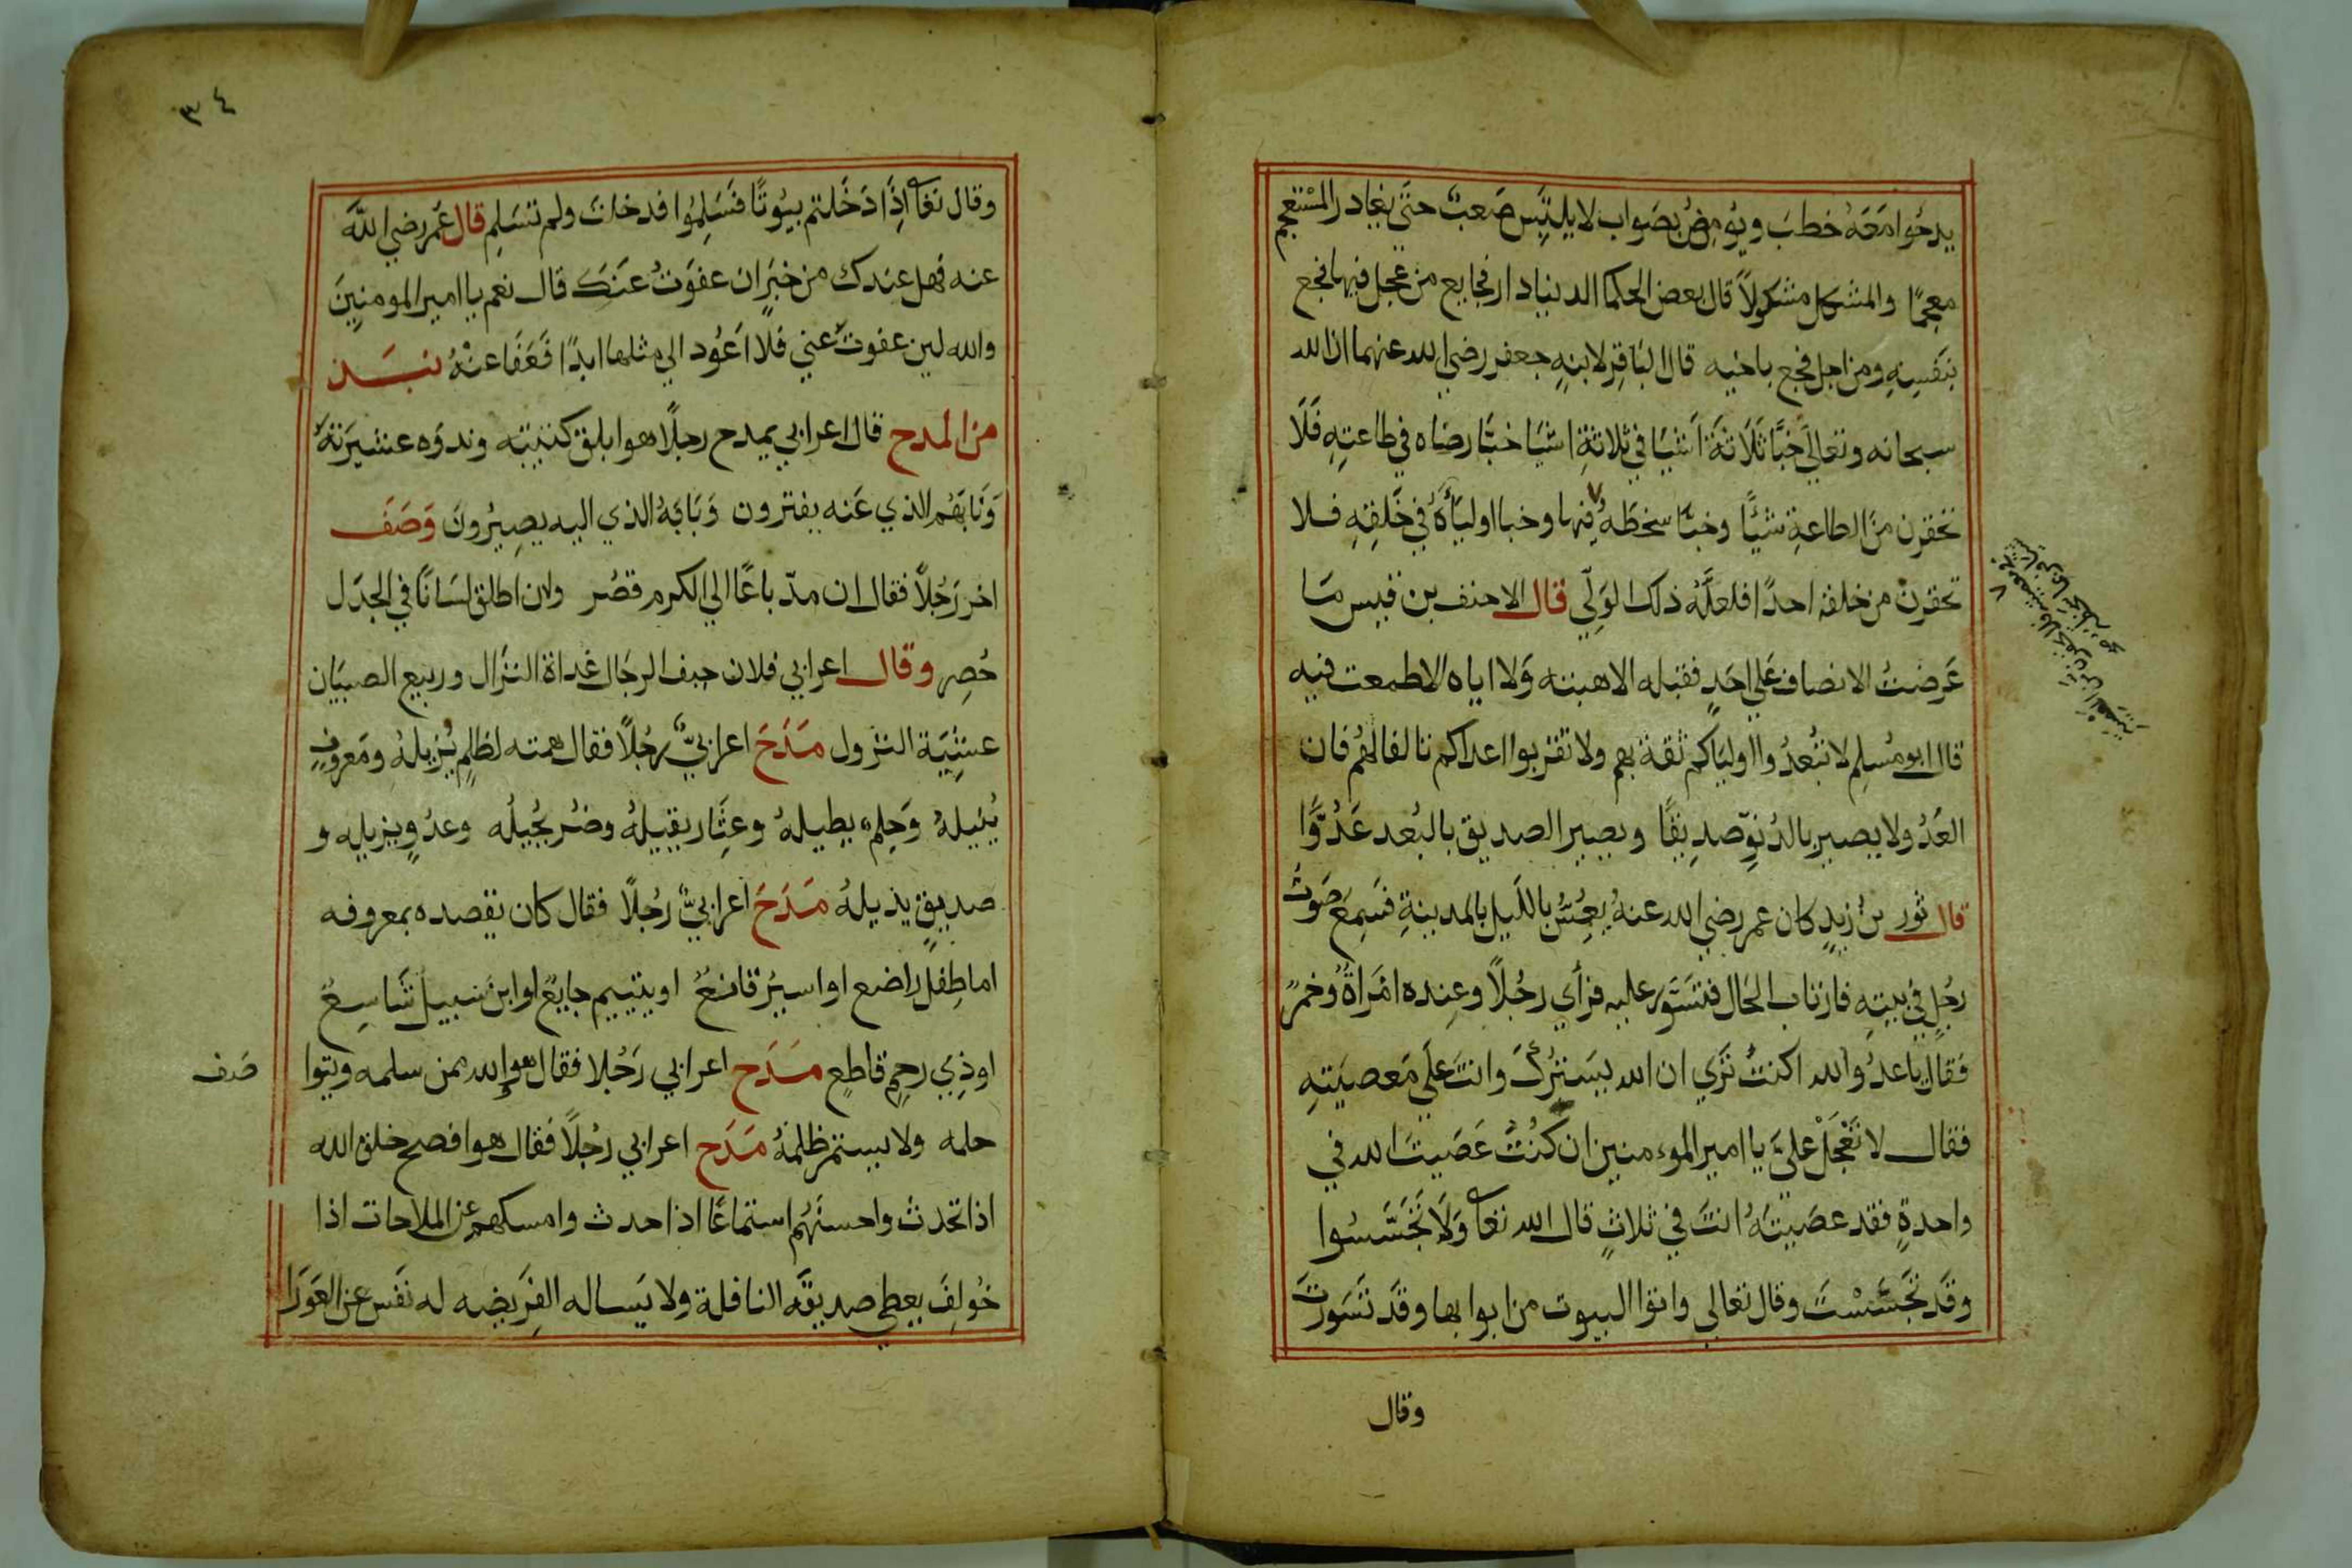 يدحُوا مَعَهُ خطبَ ويُومِضُ بصَواب لا يلتبس صَعبٌ حتَّى يغادر المسْتعجم
معجمًا والمشكل مشكولاً قال بعض الحكما الدنيا دار فجايع من عجل فيها فجع
بنَفسِهِ ومن اجل فجع باحبه قال البَاقِر لابنهِ جعفر رضي الله عنهما ان الله
سبحانه وتعالى خَبَّا ثَلَاثَةَ اَشيَا في ثلاثةِ اشيَا خبَّا رضَاه في طاعتِهِ فَلَا
تحقرن منَ الطاعةِ شَيًّا وخبَّا سخطَهُ فيها وخبا اوليَاَهُ في خَلقِهِ فلا
تحقرن من خلقه احدًا فلعلَّهُ ذلك الوَلِّي قال الاحنف بن قيس مَا
عَرضتُ الانصاف عَلى احَدٍ فقبله الا هبته وَلا اباه الا طمعت فيه
قال ابو مُسلِم لا تُبعدُوا اولياكم ثقة بهم ولا تقربوا اعداكم تالفا لهُم فان
العَدُو لا يصير بالدُنوِّ صدِيقًا ويصير الصديق بالبُعد عَدُوًّا
قال ثور بنُ زيدٍ كان عمر رضي الله عنهُ يعُسُّ بالليل بالمدينةِ فسَمِعَ صَوتَ
رجُلٍ في بيتهِ فارتاب الحَال فتسَوّر عليه فرَأي رجُلاً وعِنده امْرَاةٌ وُخمرٌ
فقال يا عدُو الله اكنتَ تَرَي ان الله يَستُرُكَ وانتَ عَلَى مَعصيَتهِ
فقال لا تَعْجَلْ علىَّ يا امير المومنين ان كُنتُ عَصَيتُ الله في
واحدةٍ فقد عصَيتَهُ انتَ في ثلاثٍ قال الله تعا وَلَا تَجَسَّسُوا
وقَد تَجَسَّسْتَ وقال تعالى واتوا البيوت من ابوابها وقَد تسَورتَ
وقال
٣٤
وقال تعا اِذَا دَخَلتم بيُوتًا فَسَلِمُوا قد خلت ولم تسَلِم قال عُمر رضي اللهُ
عنه فهل عِندك من خَيَرٍ ان عفوَتُ عنَكَ قال نعم يا امير المومنِينَ
والله لين عفوتَ عني فلا اَعُود الي مثلها ابدًا فَعَفَا عنهُ نبذ
من المدح قال اعرابي يمدح رجلاً هو ابلق كتيبته وندوَه عشيرَتهُ
وَنَابَهُم الذي عَنه يفترون وَبَابَهُ الذي اليه يصِيرُونَ وَصَفَ
اخر رَجُلاً فقال ان مدّ باعًا الي الكرم قصُر وان اطلق لسَانًا في الجدَل
حُصِر وقال اعرابي فلان حتف الرجَال غداة النزَال وربيع الصبيَان
عشِيَة النزول مَدَحَ اعرابيٌّ رجُلاً فقال همته لظلم يُزيلهُ ومَعروفٍ
يُنيلهُ وَحِلمٍ يطِيلهُ وعثَار يقيلهُ وضُر يُحيلُه وعدُوٍ يزيله و
صديقٍ يذيلهُ مَدَحَ اعرابيٌّ رجُلاً فقال كان يقصده بمعروفه
اما طِفلٌ راضع او اسيرٌ قانعٌ او يتيم جايعٌ او ابن سَبيل شَاسِعٌ
او ذِي رحِمٍ قاطعٍ مدح اعرابي رَجُلا فقال هو والله ممن سلمه ويتوا
صَف
حلمه ولا يستمر ظلمهُ مَدَح اعرابي رجُلاً فقال هو افصح خلق الله
اذا تحدث واحسنَهُم استماعًا اذا حدث وامسكهم عن الملاحات اذا
خُولِفَ يعطي صديقَه النافلة ولا يَساله الفَريضه له نَفس عن العَورَا